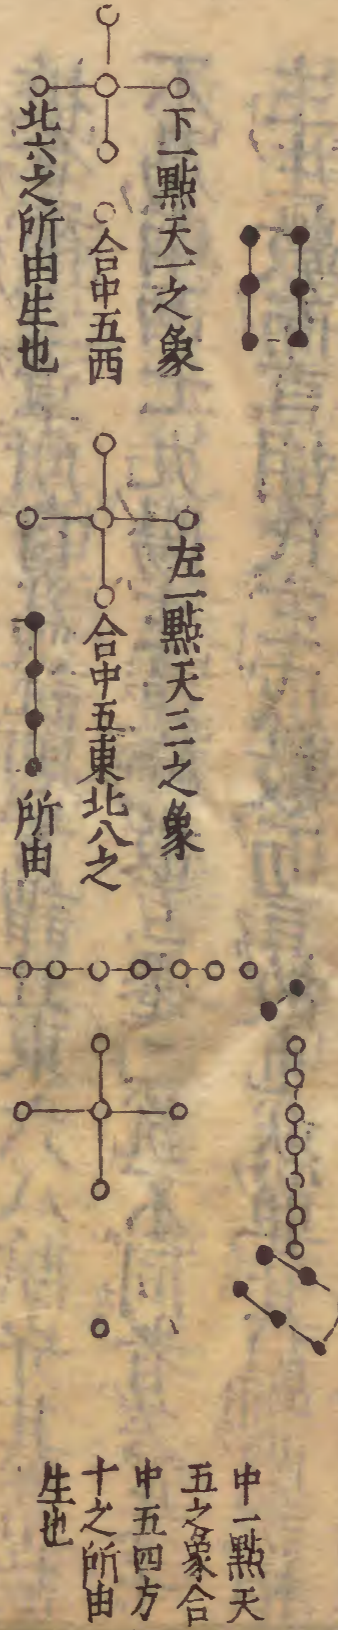 下一點天一之象
合中五西
北六之所由生也
左一點天三之象
合中五東北八之
所由
中一點天
五之象合
中五四方
十之所由
生也